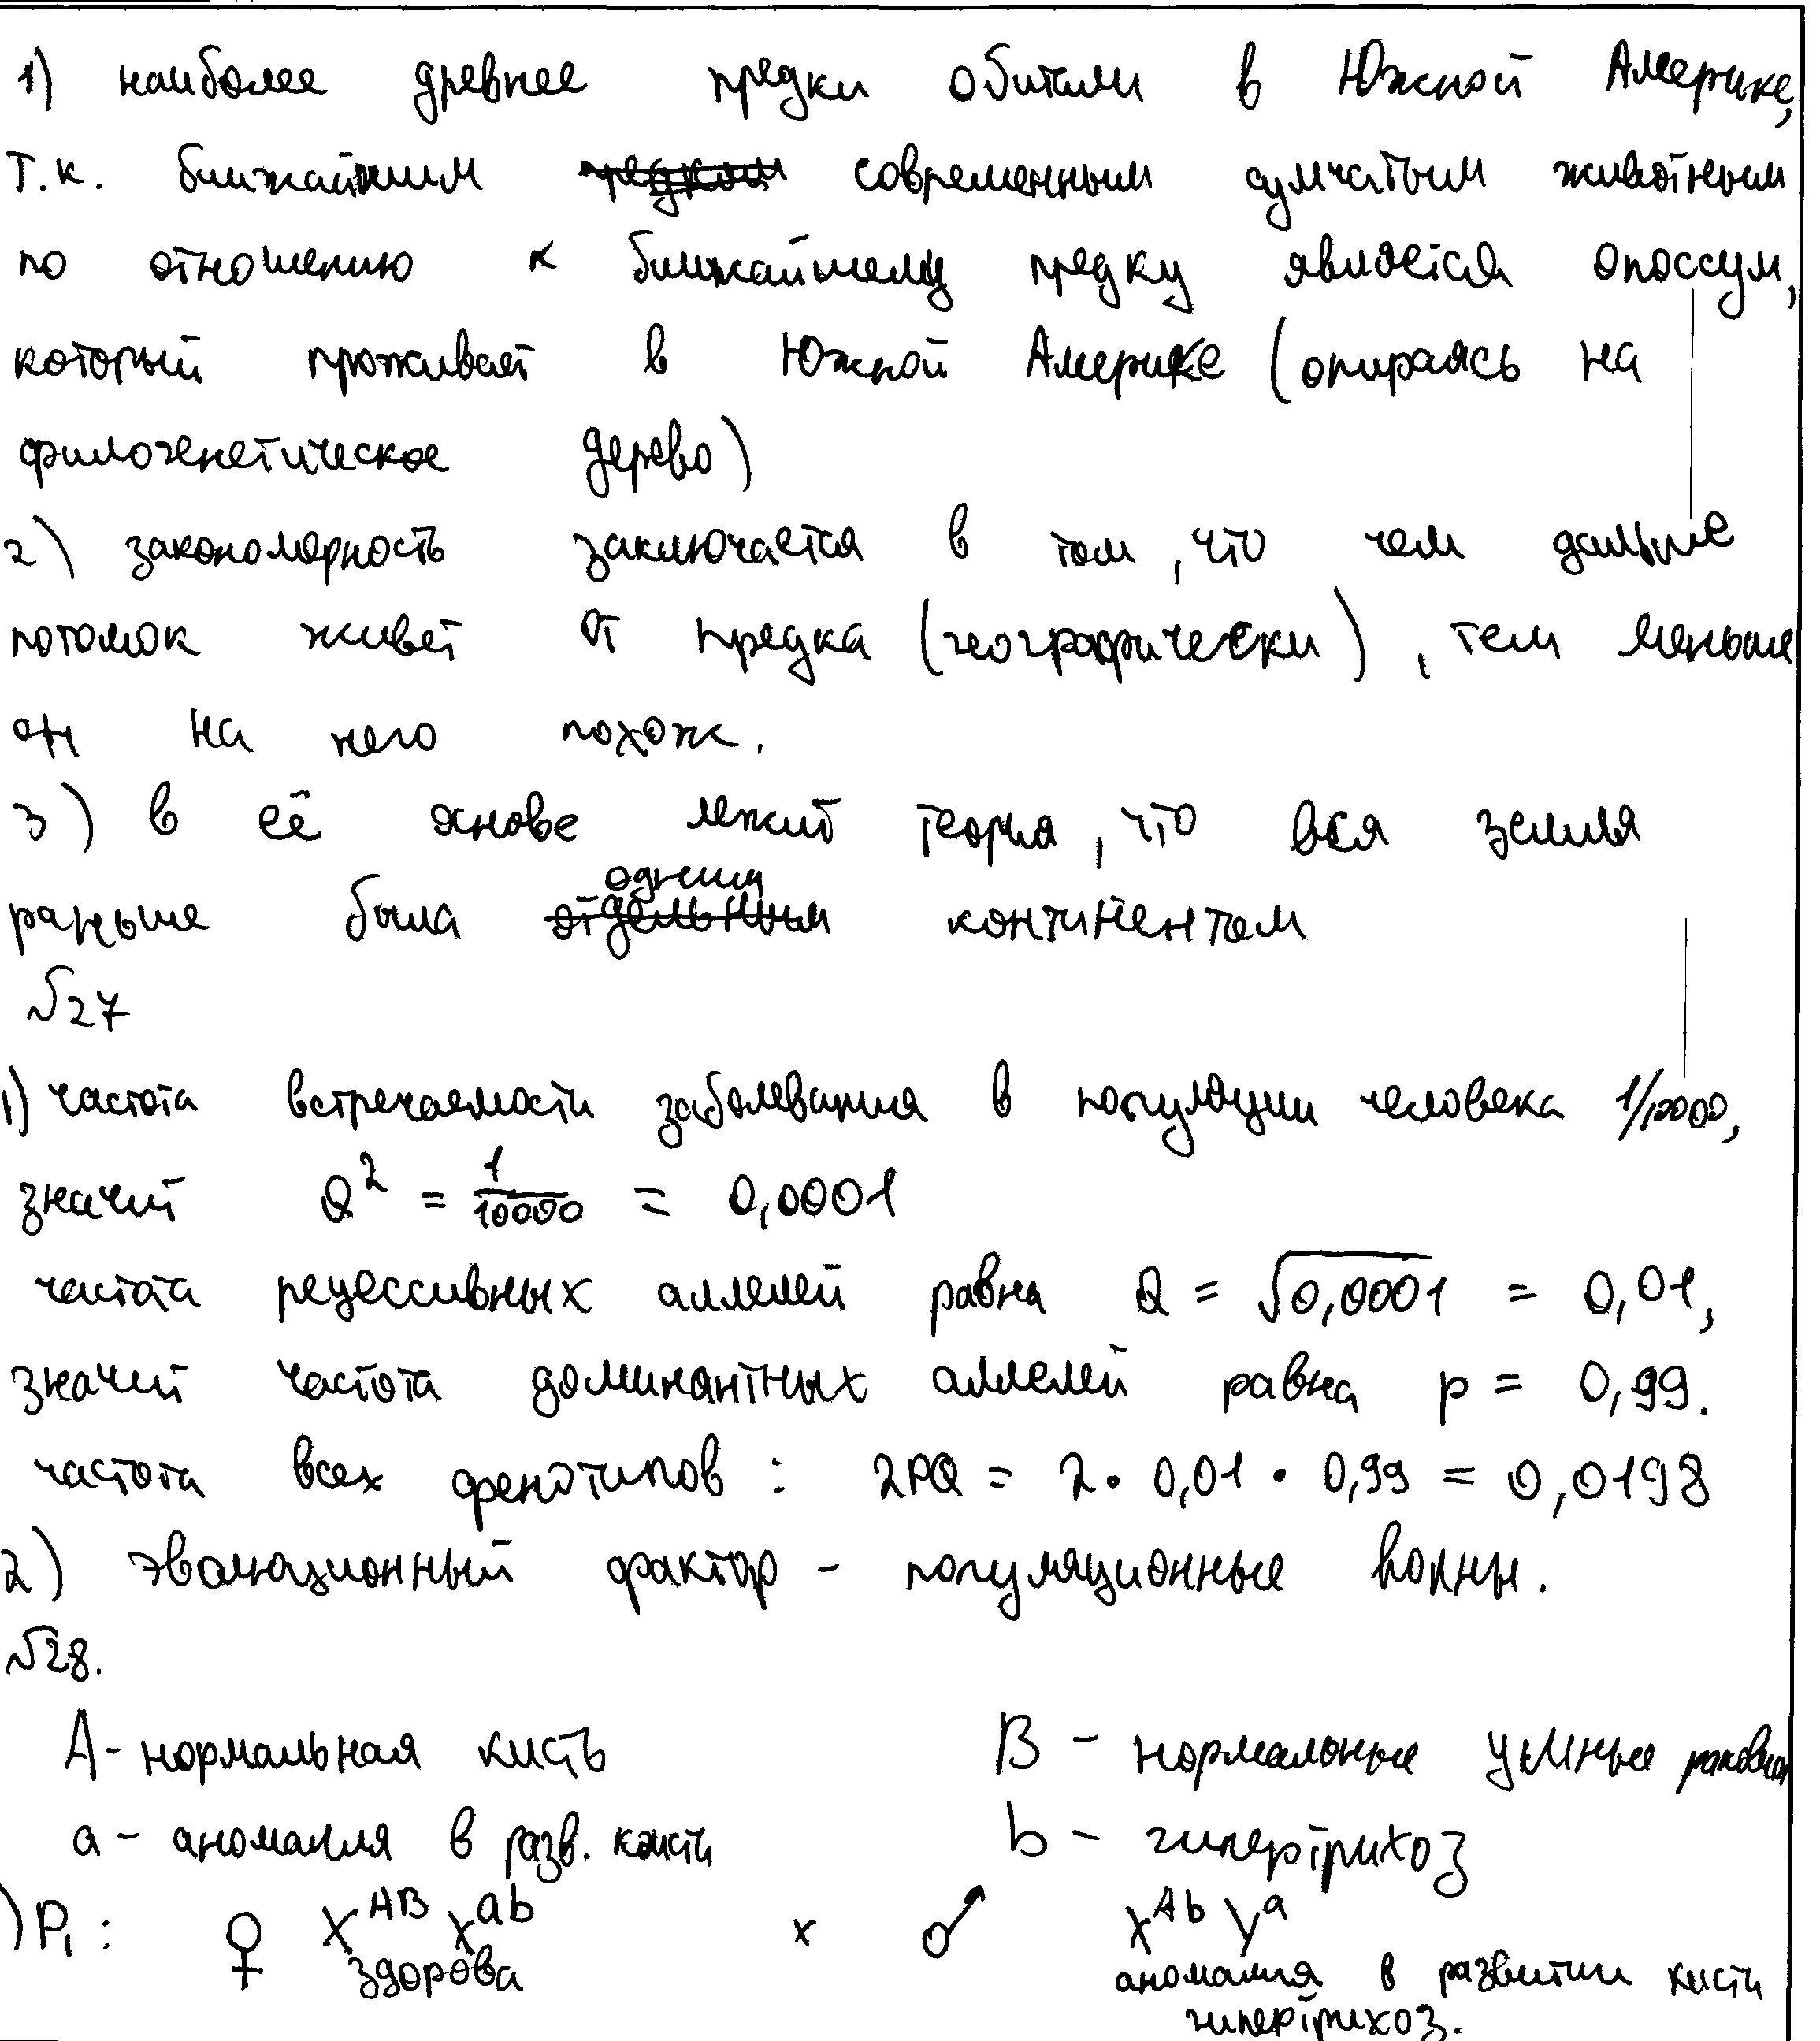 1) наиболее древнее предки обитали в Южной Америке,
т.к. ближайшим современным сумчатым животным
по отношению к ближайшему предку является опоссум,
который проживает в Южной Америке (опираясь на
филогенетическое дерево)
2) закономерность заключается в том, что чем дальше
потомок живет от предка (географически), тем меньше
он на него похож.
3) в её основе лежит теория, что вся земля
раньше была одним континентом
№27
1) частота встречаемости заболевания в популяции человека 1/10000,
значит Q² = 1/10000 = 0,0001
частота рецессивных аллелей равна Q = √0,0001 = 0,01,
значит частота доминантных аллелей равна p = 0,99.
частота всех фенотипов: 2PQ = 2 • 0,01 • 0,99 = 0,0198
2) эволюционный фактор - популяционные волны.
№28.
A - нормальная кисть B - нормальные ушные раковины
a - аномалия в разв. кисти b - гипертрихоз
) P₁: ♀ X^AB X^ab x ♂ X^Ab Y^a
здорова аномалия в развитии кисти
гипертрихоз.